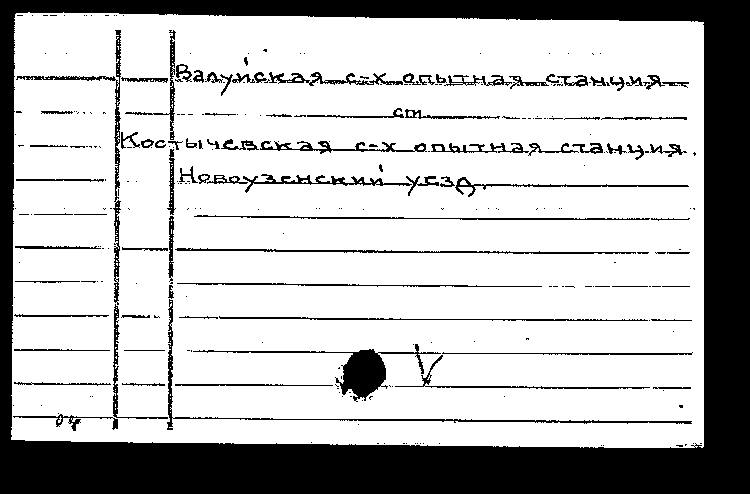 Валуйская с-х опытная станция
см
Костычевская с-х опытная станция.
Новоузенский уезд.